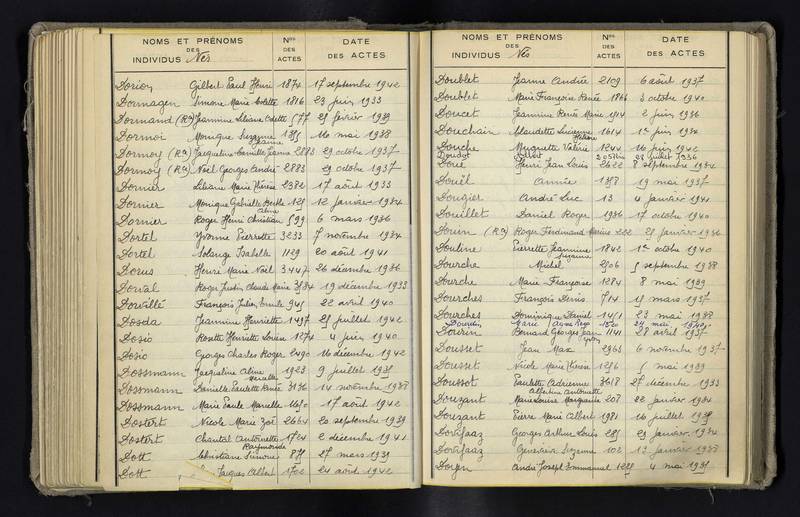 NOMS ET PRÉNOMS DES INDIVIDUS Nés Nos DES ACTES DATE DES ACTES
Dorion Gilbert Paul Henri 1874 17 septembre 1942
Dormagen Simone Marie Colette 1816 23 juin 1933
Dormand (Rs) Jeannine Liliane Odette 577 25 février 1939
Dormoi Monique Suzanne Jeanne 16 mai 1938
Dormoy (Rs) Jacqueline Camille Jeanne 2883 29 octobre 1937
Dormoy (Rs) Noël Georges André 2883 29 octobre 1937
Dornier Liliane Marie Thérèse 2382 17 août 1933
Dornier Monique Gabrielle Berthe Aline 125 12 janvier 1934
Dornier Roger Henri Christian 599 6 mars 1936
Dortel Yvonne Pierrette 3233 7 novembre 1934
Dortel Solange Isabelle 1129 20 août 1941
Dorus Henri Marie Noël 3447 26 décembre 1936
Dorval Roger Justin Claude Marie 3534 19 décembre 1933
Dorvillé François Julien Emile 945 22 avril 1940
Dosda Jeannine Henriette 1497 25 juillet 1942
Dosio Rosette Henriette 1274 4 juin 1940
Dosio Georges Charles Roger 2490 16 décembre 1942
Dossmann Jacqueline Aline Marcelle 1923 9 juillet 1935
Dossmann Danielle Paulette Renée 3136 14 novembre 1938
Dossmann Marie Paule Marcelle 1650 17 août 1942
Dostert Nicole Marie Zoé 2664 20 septembre 1939
Dostert Chantal Antoinette Raymonde 1724 2 décembre 1941
Dott Christiane Simone 875 27 mars 1939
Dott Jacques Albert 1702 24 août 1942
NOMS ET PRÉNOMS DES INDIVIDUS Nés Nos DES ACTES DATE DES ACTES
Doublet Jeanne Andrée 2109 6 août 1937
Doublet Marie Françoise Renée 1866 3 octobre 1940
Doucet Jeannine Renée Marie 1504 2 juin 1936
Douchain Claudette Lucienne 1614 15 juin 1934
Douche Muguette Valérie 1244 16 juin 1942
Doudot Gilbert 28 juillet 1936
Doué Henri Jean Louis 2622 8 septembre 1934
Douël Année 1358 19 mai 1937
Dougier André Luc 13 4 janvier 1941
Douillet Daniel Roger 1936 17 octobre 1940
Douin (Rs) Roger Ferdinand Marius 222 25 janvier 1936
Douline Pierrette Jeannine Suzanne 1842 1er octobre 1940
Dourche Michel 2506 5 septembre 1938
Dourche Marie Françoise 1284 8 mai 1939
Dourches François Denis 714 15 mars 1937
Dourches Dominique Daniel 1451 23 mai 1938
Marie 24 mai
Dourin Bernard Georges Jean Yvon 1141 28 avril 1937
Dousset Jean Max 2963 6 novembre 1937
Dousset Nicole Marie Thérèse 1256 5 mai 1939
Doussot Paulette Adrienne 3618 27 décembre 1933
Douzant Albertine Antoinette Marie Louise Marguerite 207 22 janvier 1934
Douzant Pierre Marie Albert 1981 16 juillet 1935
Dovifaaz Georges Arthur Louis 285 29 janvier 1934
Dovifaaz Geneviève Suzanne 102 12 janvier 1938
Doyen André Joseph Emmanuel 1225 4 mai 1935